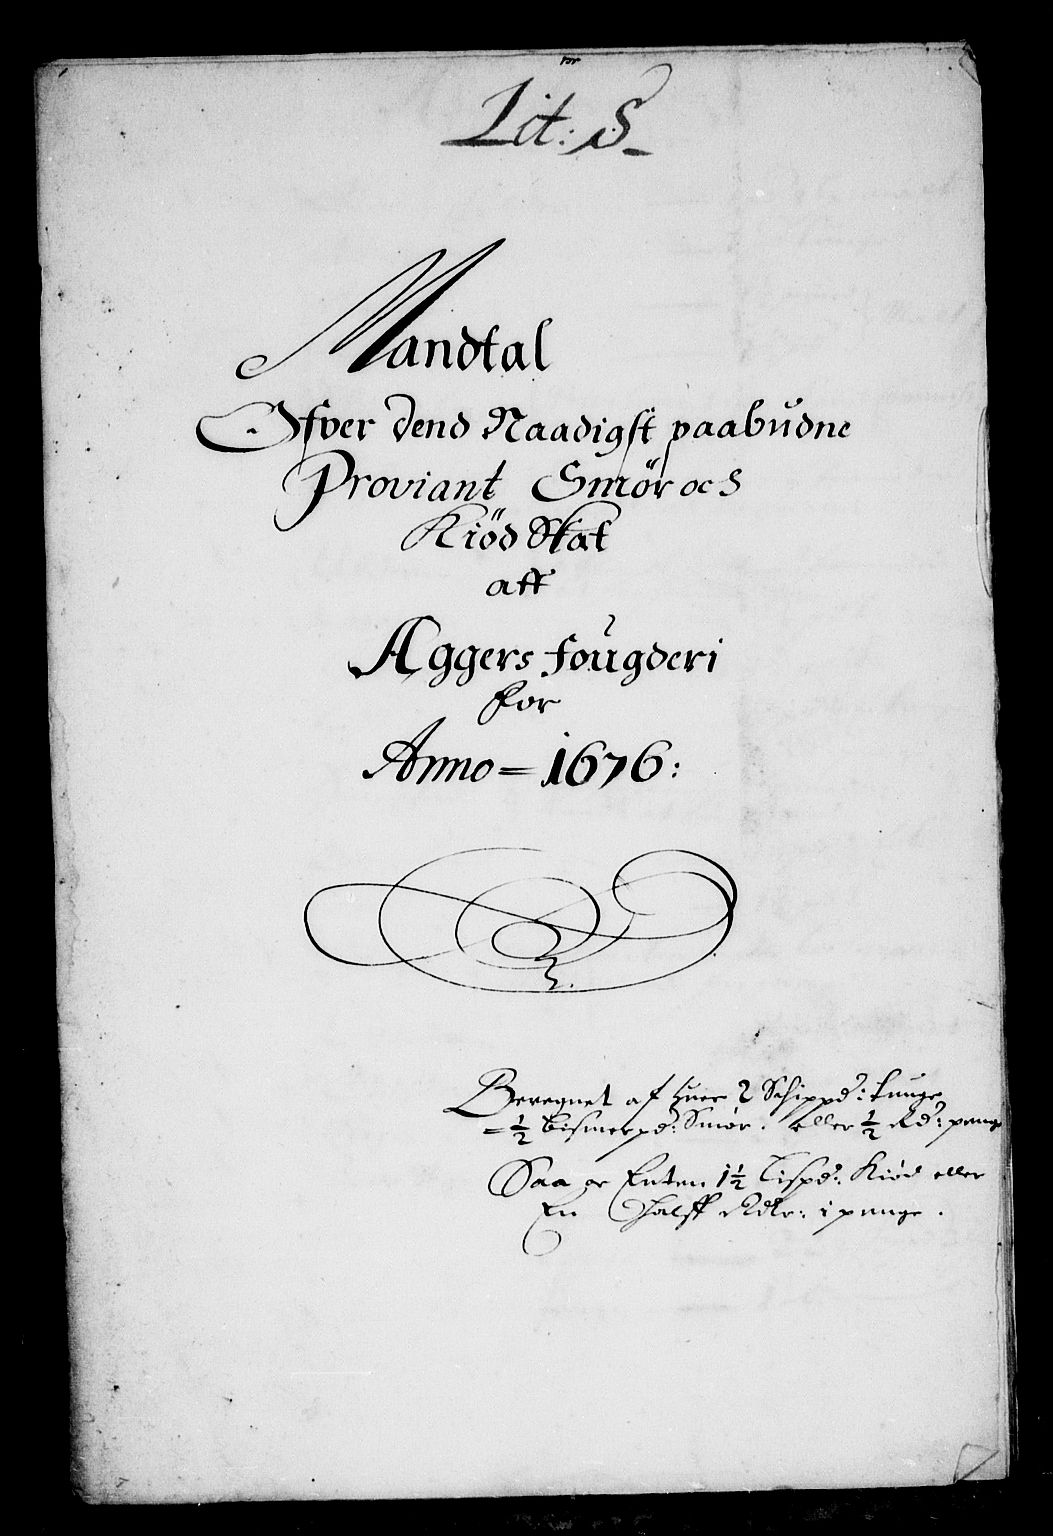 Lit: S
Mandtal
Ofver dend Naadigst paabudne
Proviant Smör och
Kiöd Skat
aff
Aggers fougderi
for
Anno = 1676:
Beregnet af huer 2 Schippd: tunge
= 1/2 bismerpd: Smör. eller 1/2 Rd: penge
Saa oc Enten 1 1/2 Lispd: Kiöd eller
En Halff Rdlr: i penge.